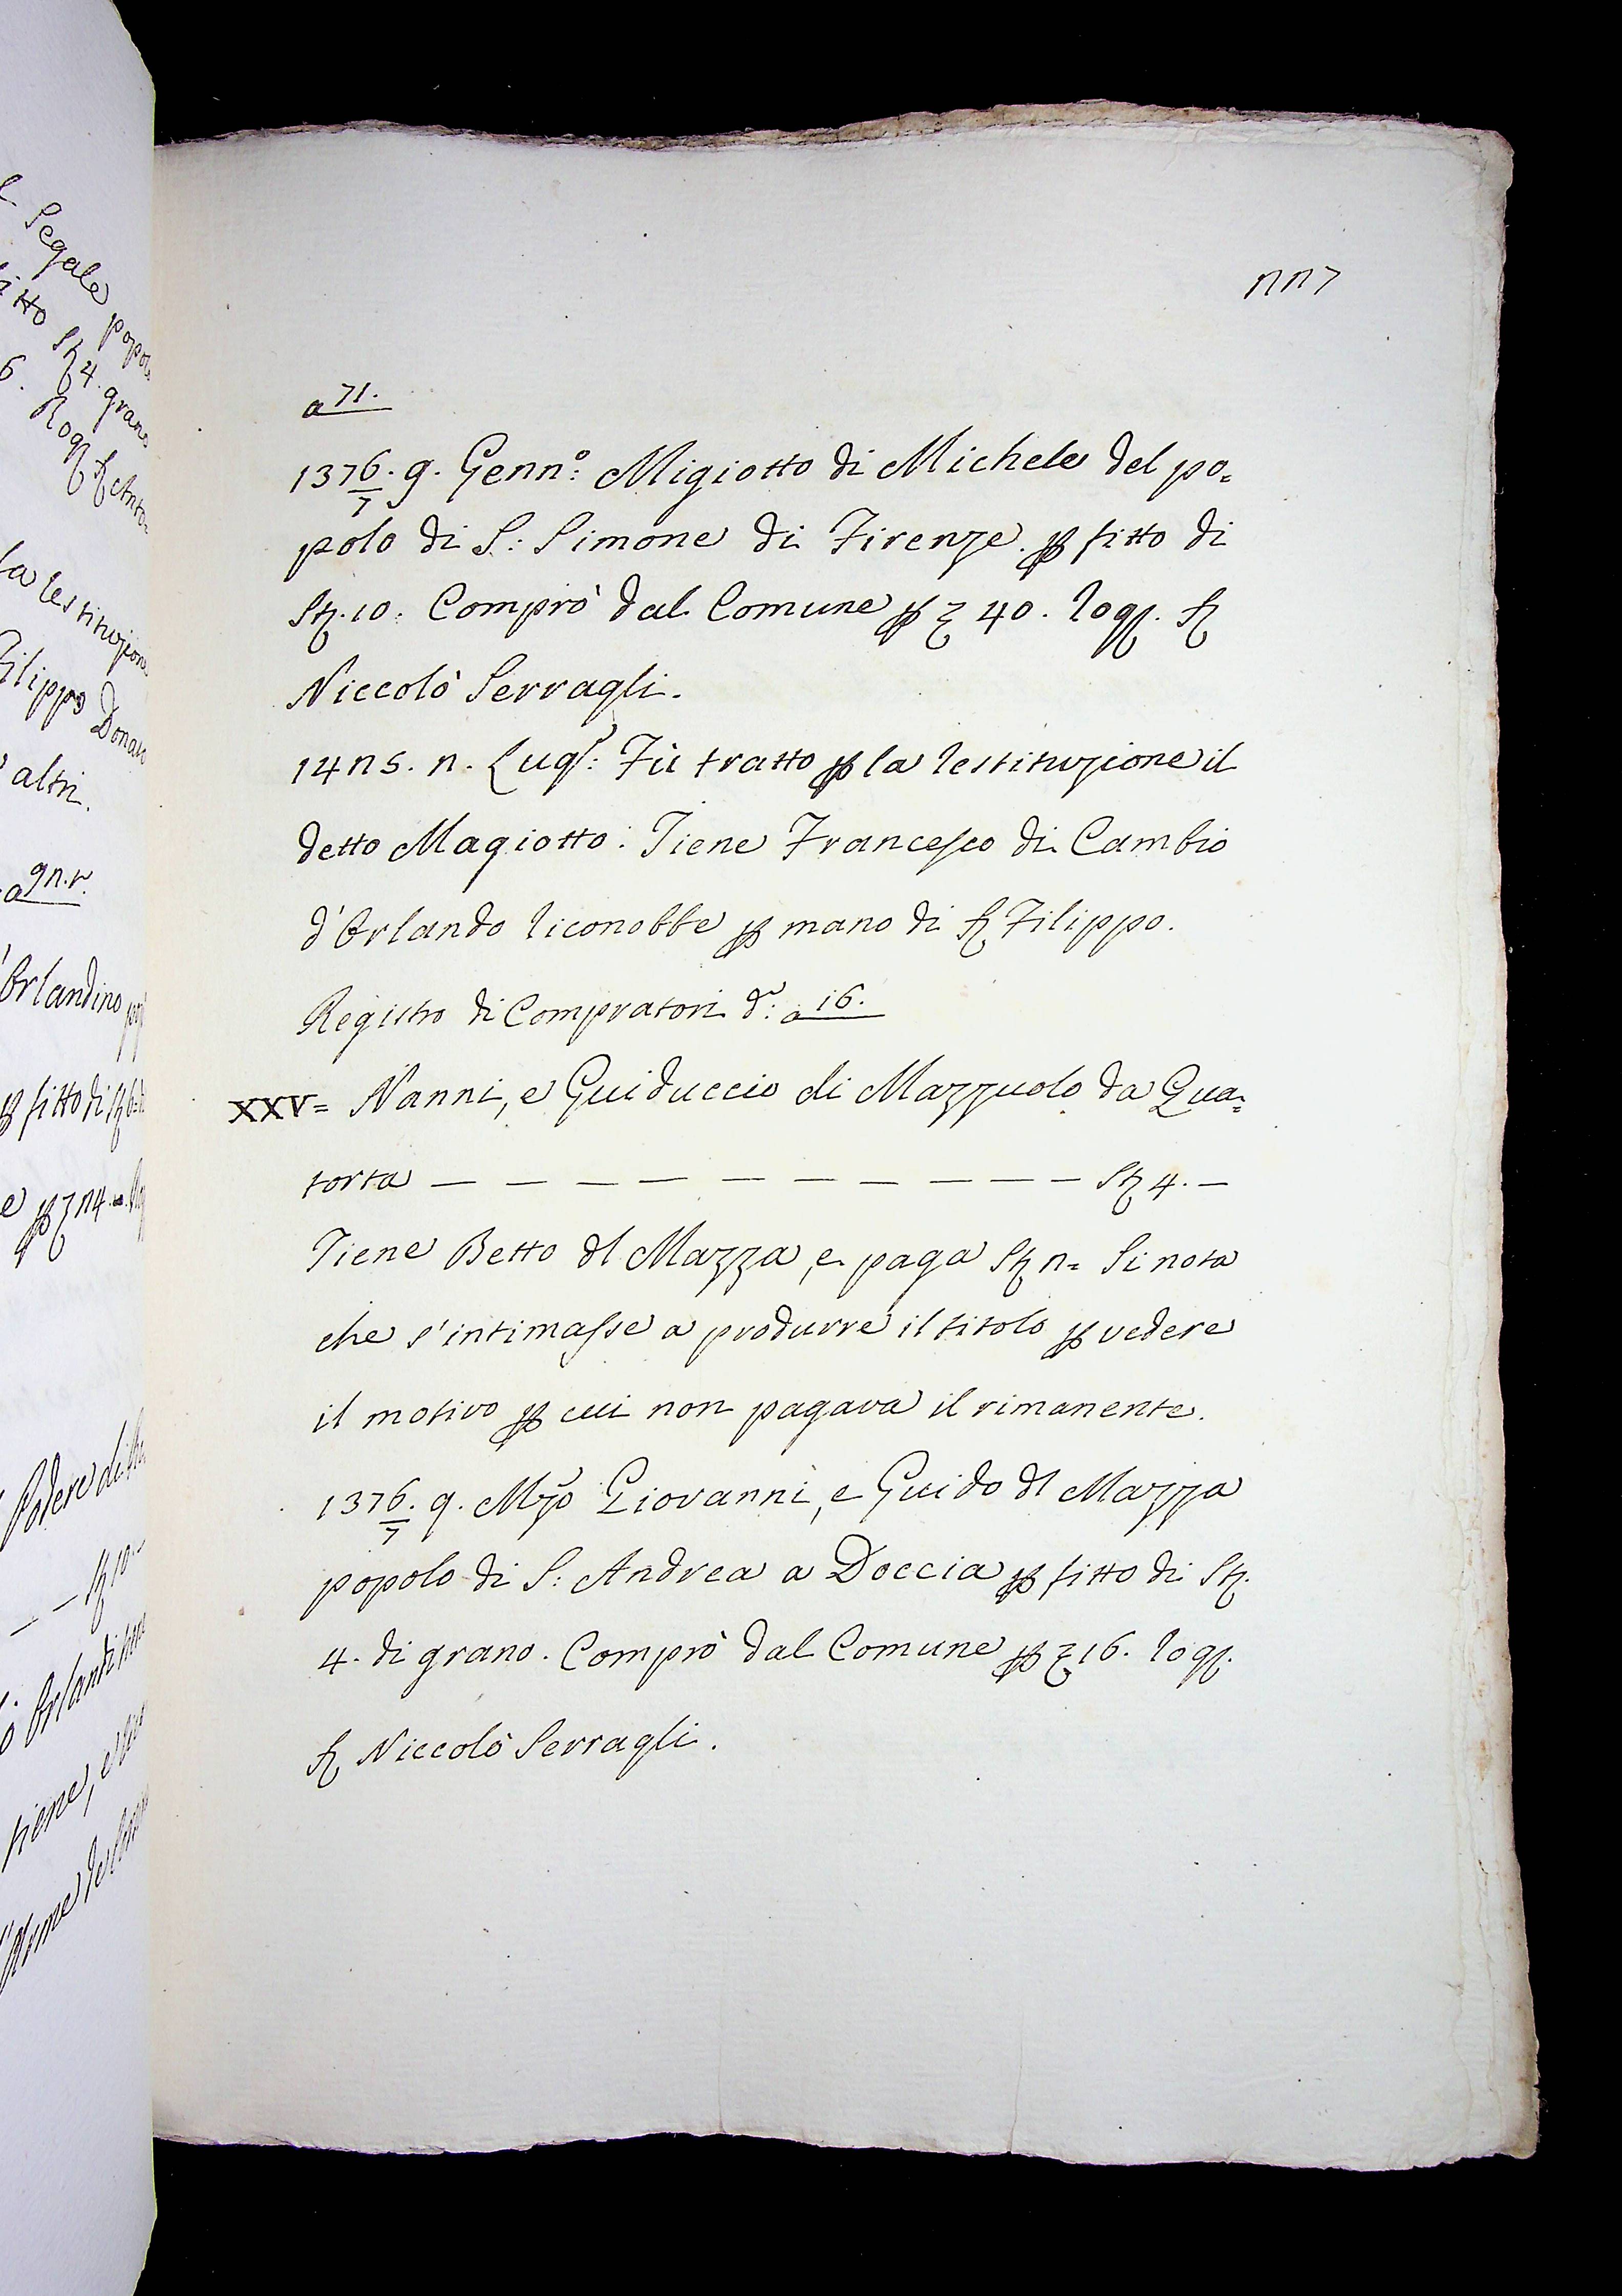 227
a 71.
1376/7. 9. Genn.º: Migiotto di Michele del po=
polo di S: Simone di Firenze. ꝑ fitto di
St. 10. Comprò dal Comune ꝑ ƺ 40. Rogġ. S.
Niccolò Serragli.
1425. 2. Lug.: Fù tratto ꝑ la Restituzione il
detto Magiotto: Tiene Francesco di Cambio
d'Orlando Riconobbe ꝑ mano di S. Filippo.
Registro di Compratori d.: a 16.
XXV= Nanni, e Guiduccio di Mazzuolo da Qua=
torta — — — — — — — — — — St 4. —
Tiene Betto dl Mazza, e paga St 2= Si nota
che s'intimasse a produrre il titolo ꝑ vedere
il motivo ꝑ cui non pagava il rimanente.
1376/7. 9. Mzo Giovanni, e Guido dl Mazza
popolo di S: Andrea a Doccia ꝑ fitto di St.
4. di grano. Comprò dal Comune ꝑ ƺ 16. Rogġ.
S. Niccolò Serragli.
Segale popolo
fitto St 4. grano
6. Rog S. Anto=
la Restituzione
Filippo Donato
altri.
a 92.r.
Orlandino
ꝑ fitto di St 6.
e ꝑ ƺ 24.
Podere di
— — St 10.
Orlandi
tiene, e